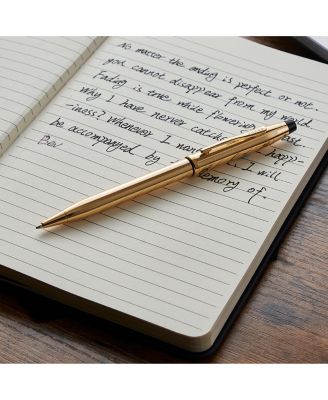 No matter the ending is perfect or not.
you cannot disappear from my world.
Fading is true while flowering
Why I have never catch
-iness? Whenever I will
be accompanied by memory of.